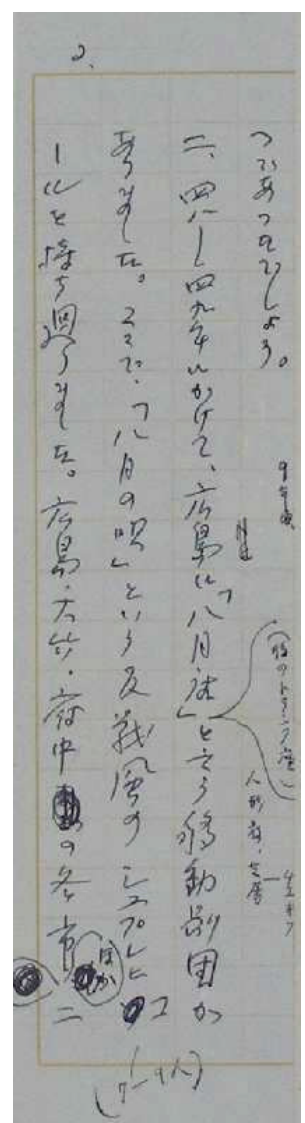 2.
つであったでしょう。
二、四八―四九年にかけて、広島に「八月座」と言う移動劇団が
(後のトランク座)
人形劇・芝居
ありました。ここで、「八月の唄」という反戦風のシュプレヒコ
ールを持ち回りました。広島・大竹・府中の各市
ほか
二
(7―9人)